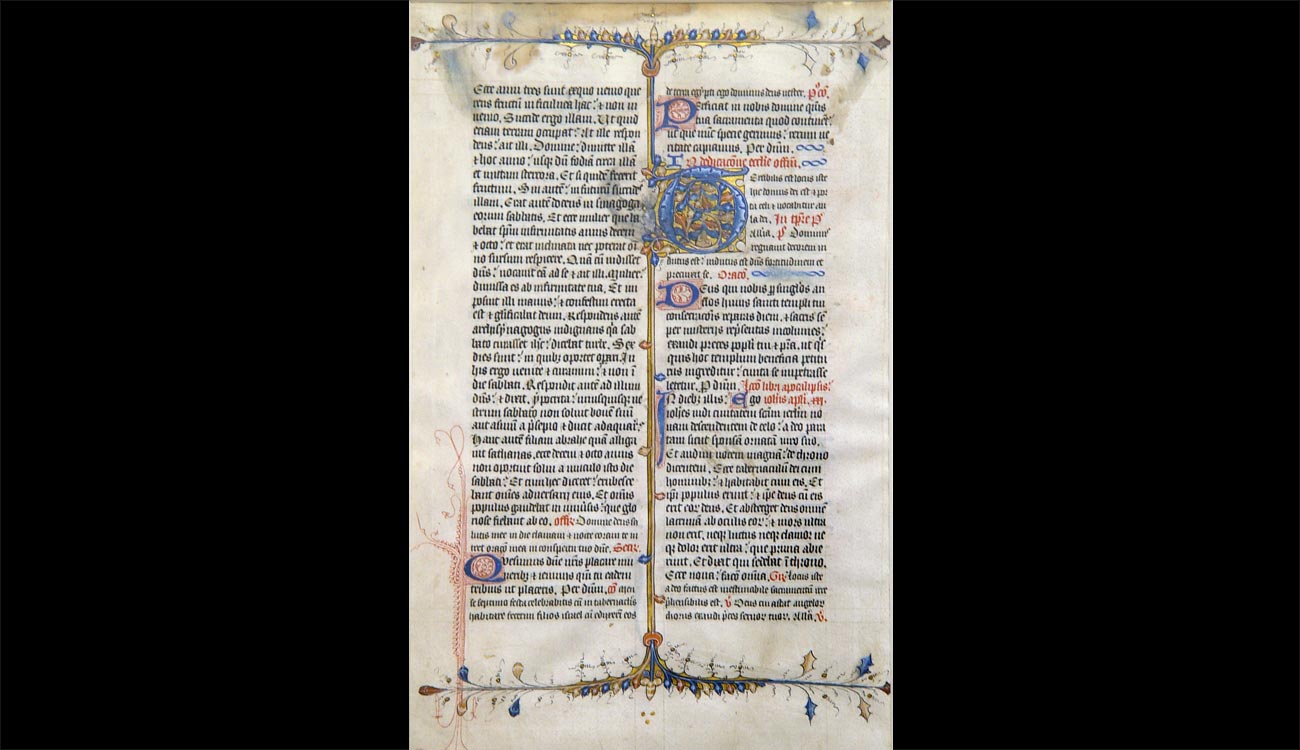 Ecce anni tres sunt ex quo uenio que
rens fructū in ficulnea hac: ⁊ non in
uenio. Succide ergo illam. Ut quid
etiam terram occupat: At ille respon
dens: ait illi. Domine: dimitte illā
⁊ hoc anno: usq; dū fodiā circa illā
et mittam stercora. Et si quidē fecerit
fructum. Sin autē: in futurū succid
illam. Erat autē docens in sinagoga
eorum sabbatis. Et ecce mulier que ha
bebat sp̄m infirmitatis annis decem
⁊ octo: et erat inclinata nec poterat oī
no sursum respicere. Quā cū uidisset
dn̄s: uocauit eā ad se ⁊ ait illi. Mulier:
dimissa es ab infirmitate tua. Et im
posuit illi manus: ⁊ confestim erecta
est ⁊ glificabat deum. Respondens autē
archisynagogus indignans q̄a sab
bato curasset ihc: dicebat turbe. Sex
dies sunt: in quibꝫ oportet opari. In
his ergo uenite ⁊ curamini: ⁊ non ī
die sabbati. Respondit autē ad illum
dn̄s: ⁊ dixit. ypocrita: unusquisque ue
strum sabbato non soluit bouē suū
aut asinū a p̄sepio ⁊ ducit adaquare:
Hanc autē filiam abrahe quā alliga
uit sathanas. ecce decem ⁊ octo annis
non oportuit solui a uinculo isto die
sabbati: Et cum hec diceret: erubesce
bant omēs aduersarii eius. Et omīs
populus gaudebat in uniūsis: que glo
riose fiebant ab eo. offr̄ Domine deus sa
lutis mee in die clamaui ⁊ nocte coram te in
tret oraō mea in conspectu tuo dn̄e. Secr̄.
Quesumus dn̄e nr̄is placare mu
neribꝫ ⁊ ieiuniis qm̄ tu eadem
tribuis ut placeris. Per dūm. cō
se septimo festa celebrabitis cū in tabernaclis
habitare fecerim filios israel cū educerem eos
de terra egypti ego dominus deus uester. P̊ cō.
Perficiat in nobis domine q̄us
tua sacramenta quod continēt:
ut que nūc specie gerimus: rerum ue
ritate capiamus. Per dūm.
In dedicacōne ecclīe offm̄.
Terribilis est locus iste
hic domus dei est ⁊ por
ta celi ⁊ uocabitur au
la dei. In tp̄re P̄
Allīa. p̄ Dominus
regnauit decorem in
dutus est: indutus est dn̄s fortitudinem et
precinxit se. Oracō.
Deus qui nobis p singlōs an
nos huius sancti templi tui
consecracōis reparas diem. ⁊ sacris sē
per misterijs repr̄sentas incolumes:
exaudi preces popli tui ⁊ p̄sta. ut q̄s
quis hoc templum beneficia petitu
rus ingreditur: cuncta se impetrasse
letetur. P dūm. lcō libri apocalipsis:
In diebꝫ illis: Ego iohīs apli. xxi.
iohēs uidi ciuitatem scām ierlm no
uam descendentem de celo: a deo para
tam sicut sponsā ornatā uiro suo.
Et audiui uocem magnā: de throno
dicentem. Ecce tabernaculū dei cum
hominibꝫ: ⁊ habitabit cum eis. Et
ip̄i populus erunt: ⁊ ip̄e deus cū eis
erit eoꝝ deus. Et absterget deus omnē
lacrimā ab oculis eoꝝ: ⁊ mors ultra
non erit. neqꝫ luctus neqꝫ clamor ne
qꝫ dolor erit ultra: que prima abie
runt. Et dixit qui sedebat ī throno.
Ecce noua: facō omīa. Gr̄ Locus iste
a deo factus est inestimabile sacramentū irre
p̄hensibilis est. v̄ Deus cui astat angelor
chorus exaudi p̄ces seruor tuor. Allīa. v̄.